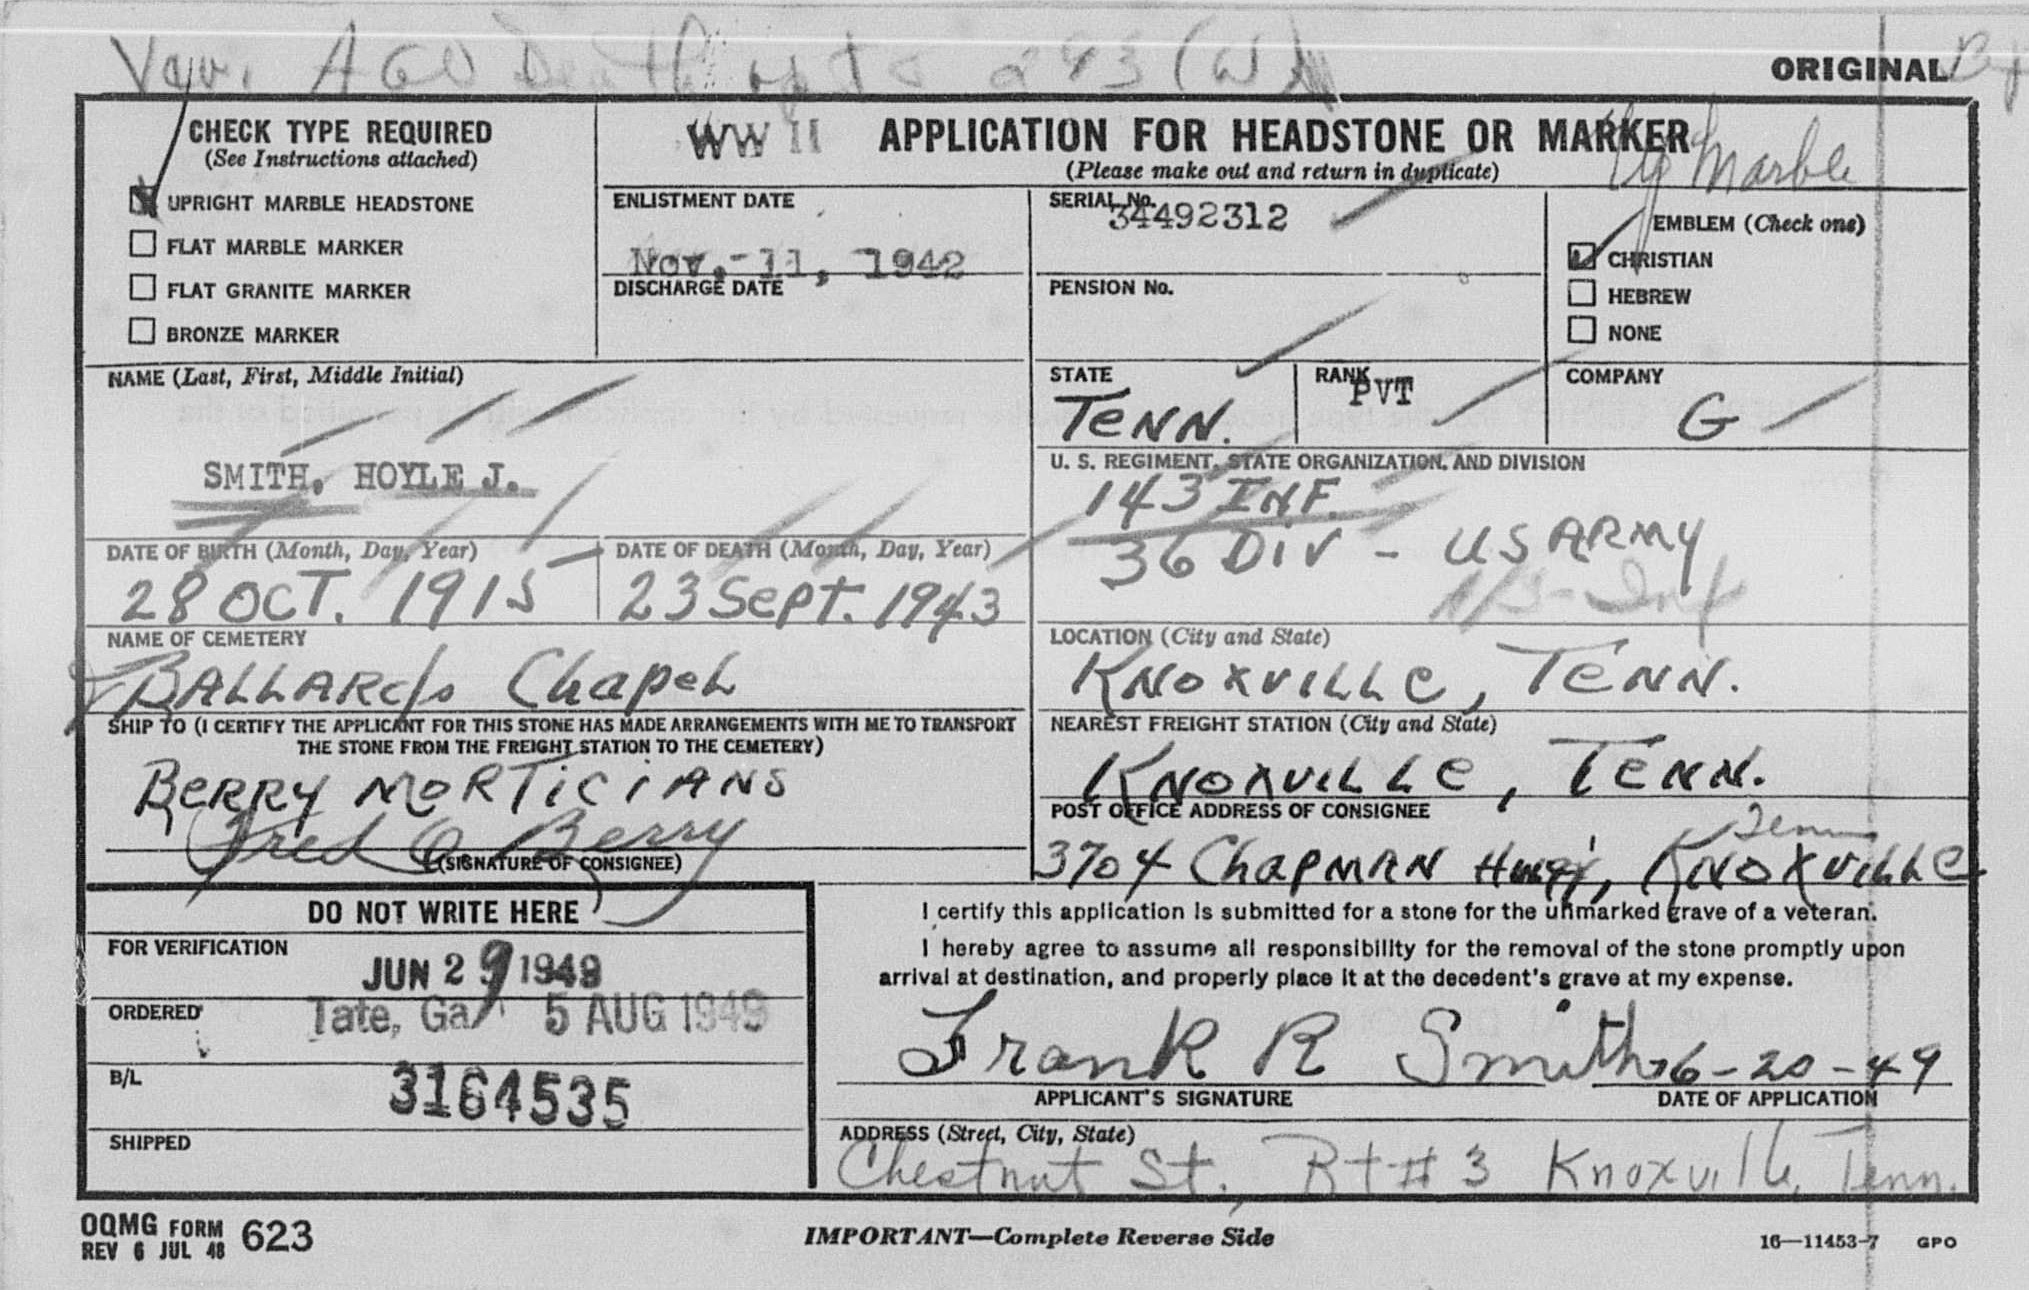 Ver. AGO Death rpt 293 (W)
ORIGINAL
CHECK TYPE REQUIRED
(See Instructions attached)
UPRIGHT MARBLE HEADSTONE
FLAT MARBLE MARKER
FLAT GRANITE MARKER
BRONZE MARKER
WW II APPLICATION FOR HEADSTONE OR MARKER
(Please make out and return in duplicate)
Marble
ENLISTMENT DATE
Nov, 11, 1942
DISCHARGE DATE
SERIAL No.
34492312
PENSION No.
EMBLEM (Check one)
CHRISTIAN
HEBREW
NONE
NAME (Last, First, Middle Initial)
SMITH, HOYLE J.
STATE
TENN.
RANK
PVT
COMPANY
G
U. S. REGIMENT, STATE ORGANIZATION, AND DIVISION
143 INF.
36 DIV - US ARMY
DATE OF BIRTH (Month, Day, Year)
28 OCT. 1915
DATE OF DEATH (Month, Day, Year)
23 Sept. 1943
NAME OF CEMETERY
BALLARds Chapel
LOCATION (City and State)
KNOXVILLE, TENN.
SHIP TO (I CERTIFY THE APPLICANT FOR THIS STONE HAS MADE ARRANGEMENTS WITH ME TO TRANSPORT
THE STONE FROM THE FREIGHT STATION TO THE CEMETERY)
BERRY MORTICIANS
Fred O Berry
(SIGNATURE OF CONSIGNEE)
NEAREST FREIGHT STATION (City and State)
KNOXVILLE, TENN.
POST OFFICE ADDRESS OF CONSIGNEE
3704 CHAPMAN Hwy, KNOXVILLE
Tenn
DO NOT WRITE HERE
FOR VERIFICATION
JUN 29 1949
ORDERED
Tate, Ga. 5 AUG 1949
B/L
3164535
SHIPPED
I certify this application is submitted for a stone for the unmarked grave of a veteran.
I hereby agree to assume all responsibility for the removal of the stone promptly upon
arrival at destination, and properly place it at the decedent's grave at my expense.
Frank R Smith 6-20-49
APPLICANT'S SIGNATURE
DATE OF APPLICATION
ADDRESS (Street, City, State)
Chestnut St., Rt #3 Knoxville, Tenn.
OQMG FORM 623
REV 6 JUL 48
IMPORTANT—Complete Reverse Side
16—11453-7 GPO